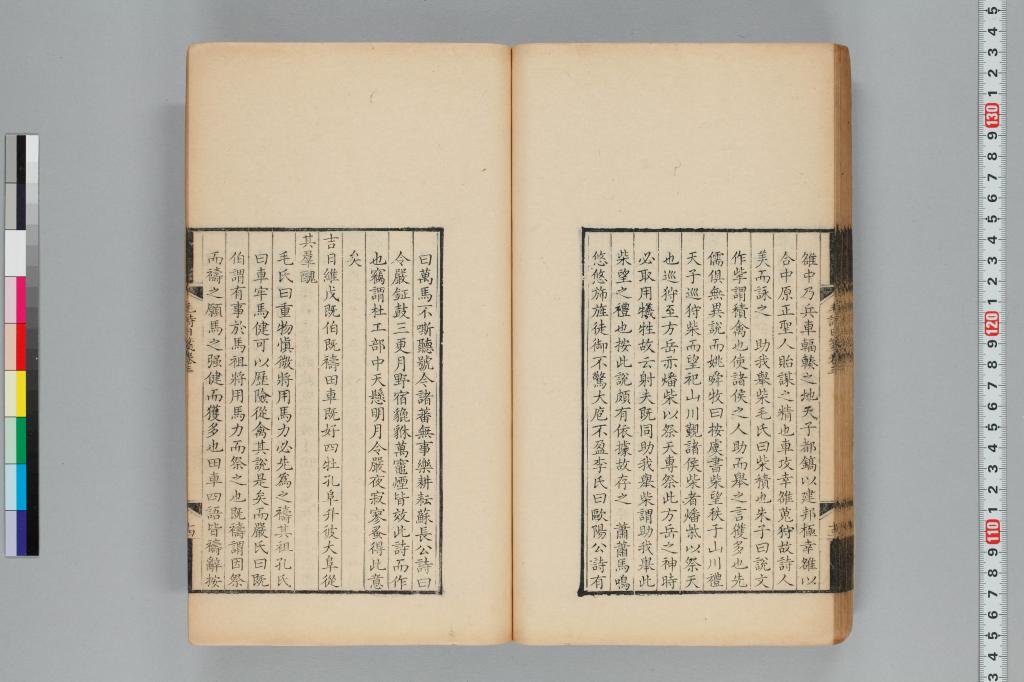 雒中乃兵車輻輳之地天子都鎬以建邦極幸雒以
合中原正聖人貽謀之精也車攻幸雒蒐狩故詩人
美而詠之 助我舉柴毛氏曰柴積也朱子曰說文
作㧘謂積禽也使諸侯之人助而舉之言獲多也先
儒俱無異說而姚舜牧曰按虞書柴望秩于山川禮
天子巡狩柴而望祀山川覲諸侯柴者燔柴以祭天
也巡狩至方岳亦燔柴以祭天專祭此方岳之神時
必取用犧牲故云射夫既同助我舉柴謂助我舉此
柴望之禮也按此說頗有依據故存之 蕭蕭馬鳴
悠悠斾旌徒御不驚大庖不盈李氏曰歐陽公詩有
曰萬馬不嘶聽號令諸蕃無事樂耕耘蘇長公詩曰
令嚴鉦鼓三更月野宿貔貅萬竈煙皆效此詩而作
也竊謂杜工部中天懸明月令嚴夜寂寥蚤得此意
矣
吉日維戊既伯既禱田車既好四牡孔阜升彼大阜從
其羣醜
毛氏曰重物慎微將用馬力必先為之禱其祖孔氏
曰車牢馬健可以歷險從禽其說是矣而嚴氏曰既
伯謂有事於馬祖將用馬力而祭之也既禱謂因祭
而禱之願馬之强健而獲多也田車四語皆禱辭按